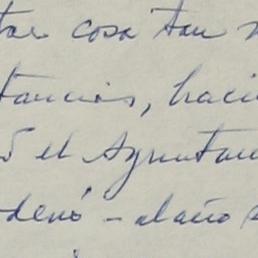 tar cosa tan
tancias, haci
ó el Ayuntam
denó - al año